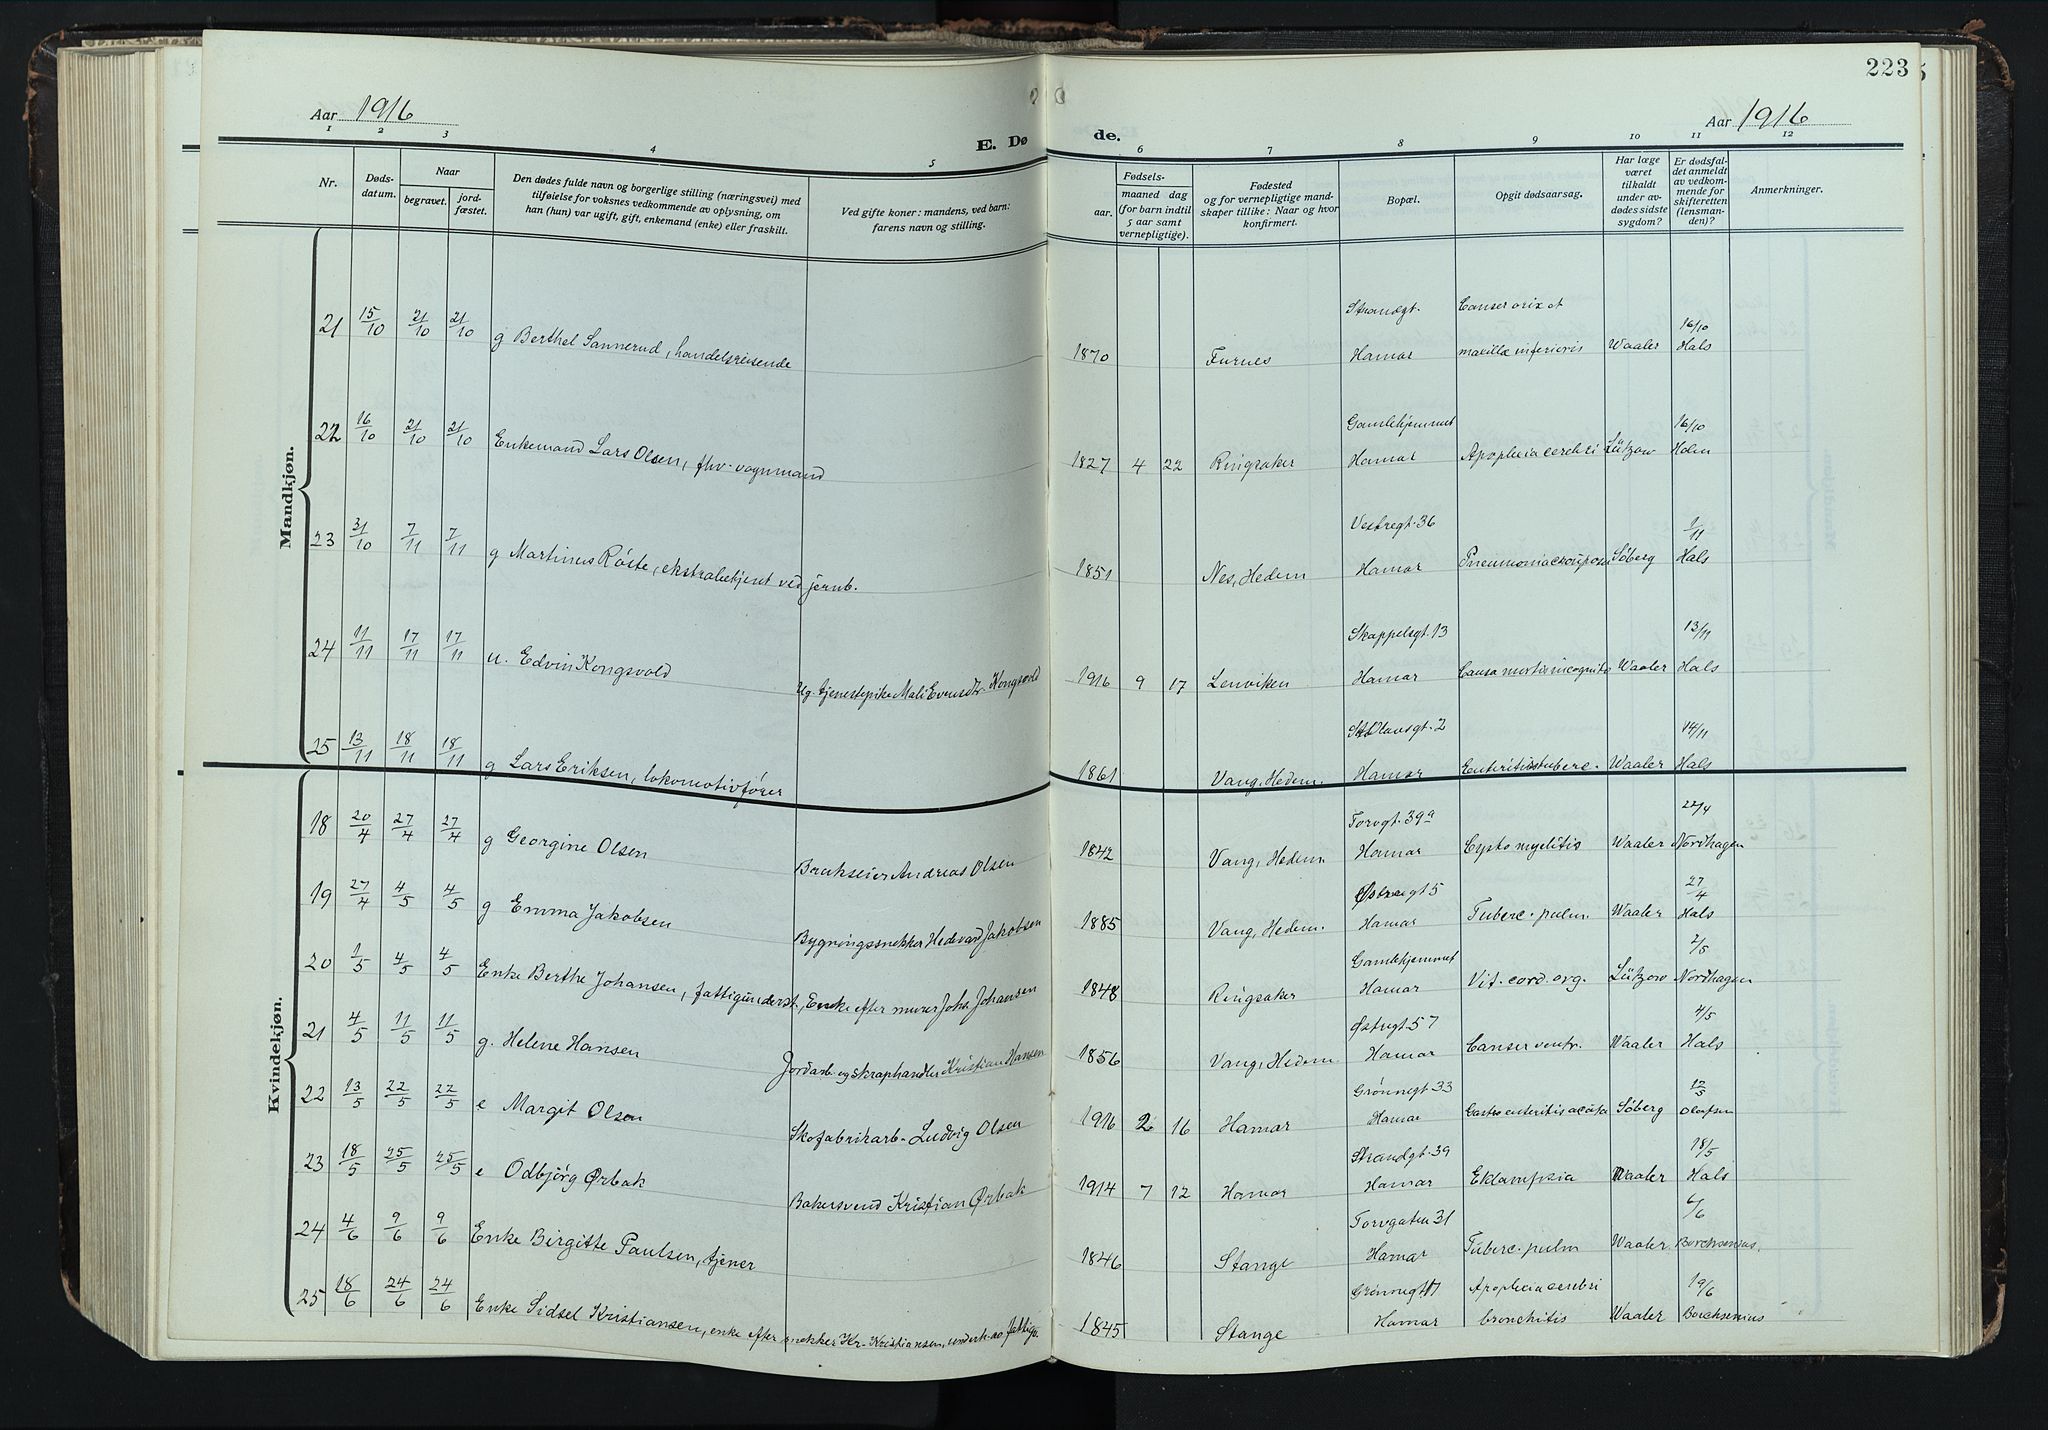 223
Aar 1916
Aar 1916
E. Dø de.
1 2 3 4 5 6 7 8 9 10 11 12
Nr.
Døds-
datum.
Naar
begravet.
jord-
fæstet.
Den dødes fulde navn og borgerlige stilling (næringsvei) med
tilføielse for voksnes vedkommende av oplysning, om
han (hun) var ugift, gift, enkemand (enke) eller fraskilt.
Ved gifte koner: mandens, ved barn:
farens navn og stilling.
Fødsels-
aar.
maaned dag
(for barn indtil
5 aar samt
vernepligtige).
Fødested
og for vernepligtige mand-
skaper tillike: Naar og hvor
konfirmert.
Bopæl.
Opgit dødsaarsag.
Har læge
været
tilkaldt
under av-
dødes sidste
sygdom?
Er dødsfal-
det anmeldt
av vedkom-
mende for
skifteretten
(lensman-
den)?
Anmerkninger.
Mandkjøn.
21 15/10 21/10 21/10 g Berthel Sannerud, handelsreisende 1870 Furnes Strandgt. Hamar maxillæ inferioris Waaler 16/10 Hals
22 16/10 21/10 21/10 Enkemand Lars Olsen, fhv. vognmand 1827 4 22 Ringsaker Gamlehjemmet Hamar Apoplexia cerebri Lützow 16/10 Holm
23 31/10 7/11 7/11 g Martinus Röste, ekstrabetjent ved jernb. 1851 Nes, Hedem Vestregt. 36 Hamar Pneumonia crouposa Söberg 1/11 Hals
24 11/11 17/11 17/11 u. Edvin Kongsvold Ug. tjenestepike Mali Evensdtr. Kongsvold 1916 9 17 Lenviken Skappelsgt. 13 Hamar Causa mortis incognita Waaler 13/11 Hals
25 13/11 18/11 18/11 g Lars Eriksen, lokomotivfører 1861 Vang, Hedem. St. Olavsgt. 2 Hamar Enteritis tuberc. Waaler 14/11 Hals
Kvindekjøn.
18 20/4 27/4 27/4 g Georgine Olsen Brukseier Andreas Olsen 1842 Vang, Hedem. Torvgt. 39a Hamar Cysto myelitis Waaler 22/4 Nordhagen
19 27/4 4/5 4/5 g Emma Jakobsen Bygningssnekker Hedevard Jakobsen 1885 Vang, Hedem. Østregt 5 Hamar Tuberc. pulm. Waaler 27/4 Hals
20 1/5 4/5 4/5 Enke Berthe Johansen, fattigunderst., Enke efter murer Johs. Johansen 1848 Ringsaker Gamlehjemmet Hamar Vit. cord. org. Lützow 2/5 Nordhagen
21 4/5 11/5 11/5 g. Helene Hansen Jordarb. og skraphandler Kristian Hansen 1856 Vang, Hedem. Østregt 57 Hamar Canser ventr. Waaler 4/5 Hals
22 13/5 22/5 22/5 e Margit Olsen Skofabrikarb. Ludvig Olsen 1916 2 16 Hamar Grønnegt. 33 Hamar Gastro enteritis acuta Söberg 12/5 Olafsen
23 18/5 25/5 25/5 e Odbjörg Ørbak Bakersvend Kristian Ørbak 1914 7 12 Hamar Strandgt. 39 Hamar Eklampsia Waaler 18/5 Hals
24 4/6 9/6 9/6 Enke Birgitte Paulsen, tjener 1846 Stange Torvgaten 31 Hamar Tuberc. pulm Waaler 6/6 Borchsenius.
25 18/6 24/6 24/6 Enke Sidsel Kristiansen, enke efter snekker Kr. Kristiansen, underh. av fattigv. 1845 Stange Grønnegt 17 Hamar Apoplexia cerebri bronchitis Waaler 19/6 Borchsenius